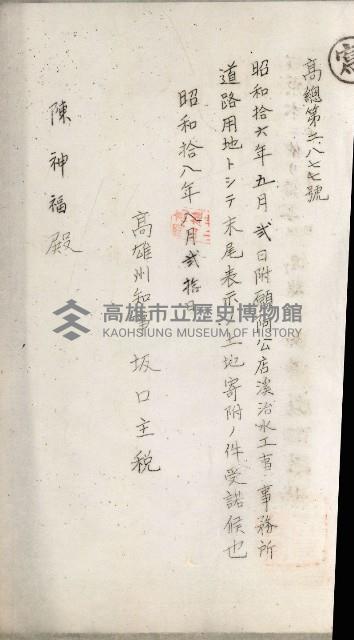 寫
高總第六八七七號
昭和拾六年五月弐日附願阿公店溪治水工事事務所
道路用地トシテ末尾表示ノ土地寄附ノ件受諾候也
昭和拾八年八月弐拾日
高雄州知事 坂口主税
陳神福殿
高雄市立歷史博物館
KAOHSIUNG MUSEUM OF HISTORY